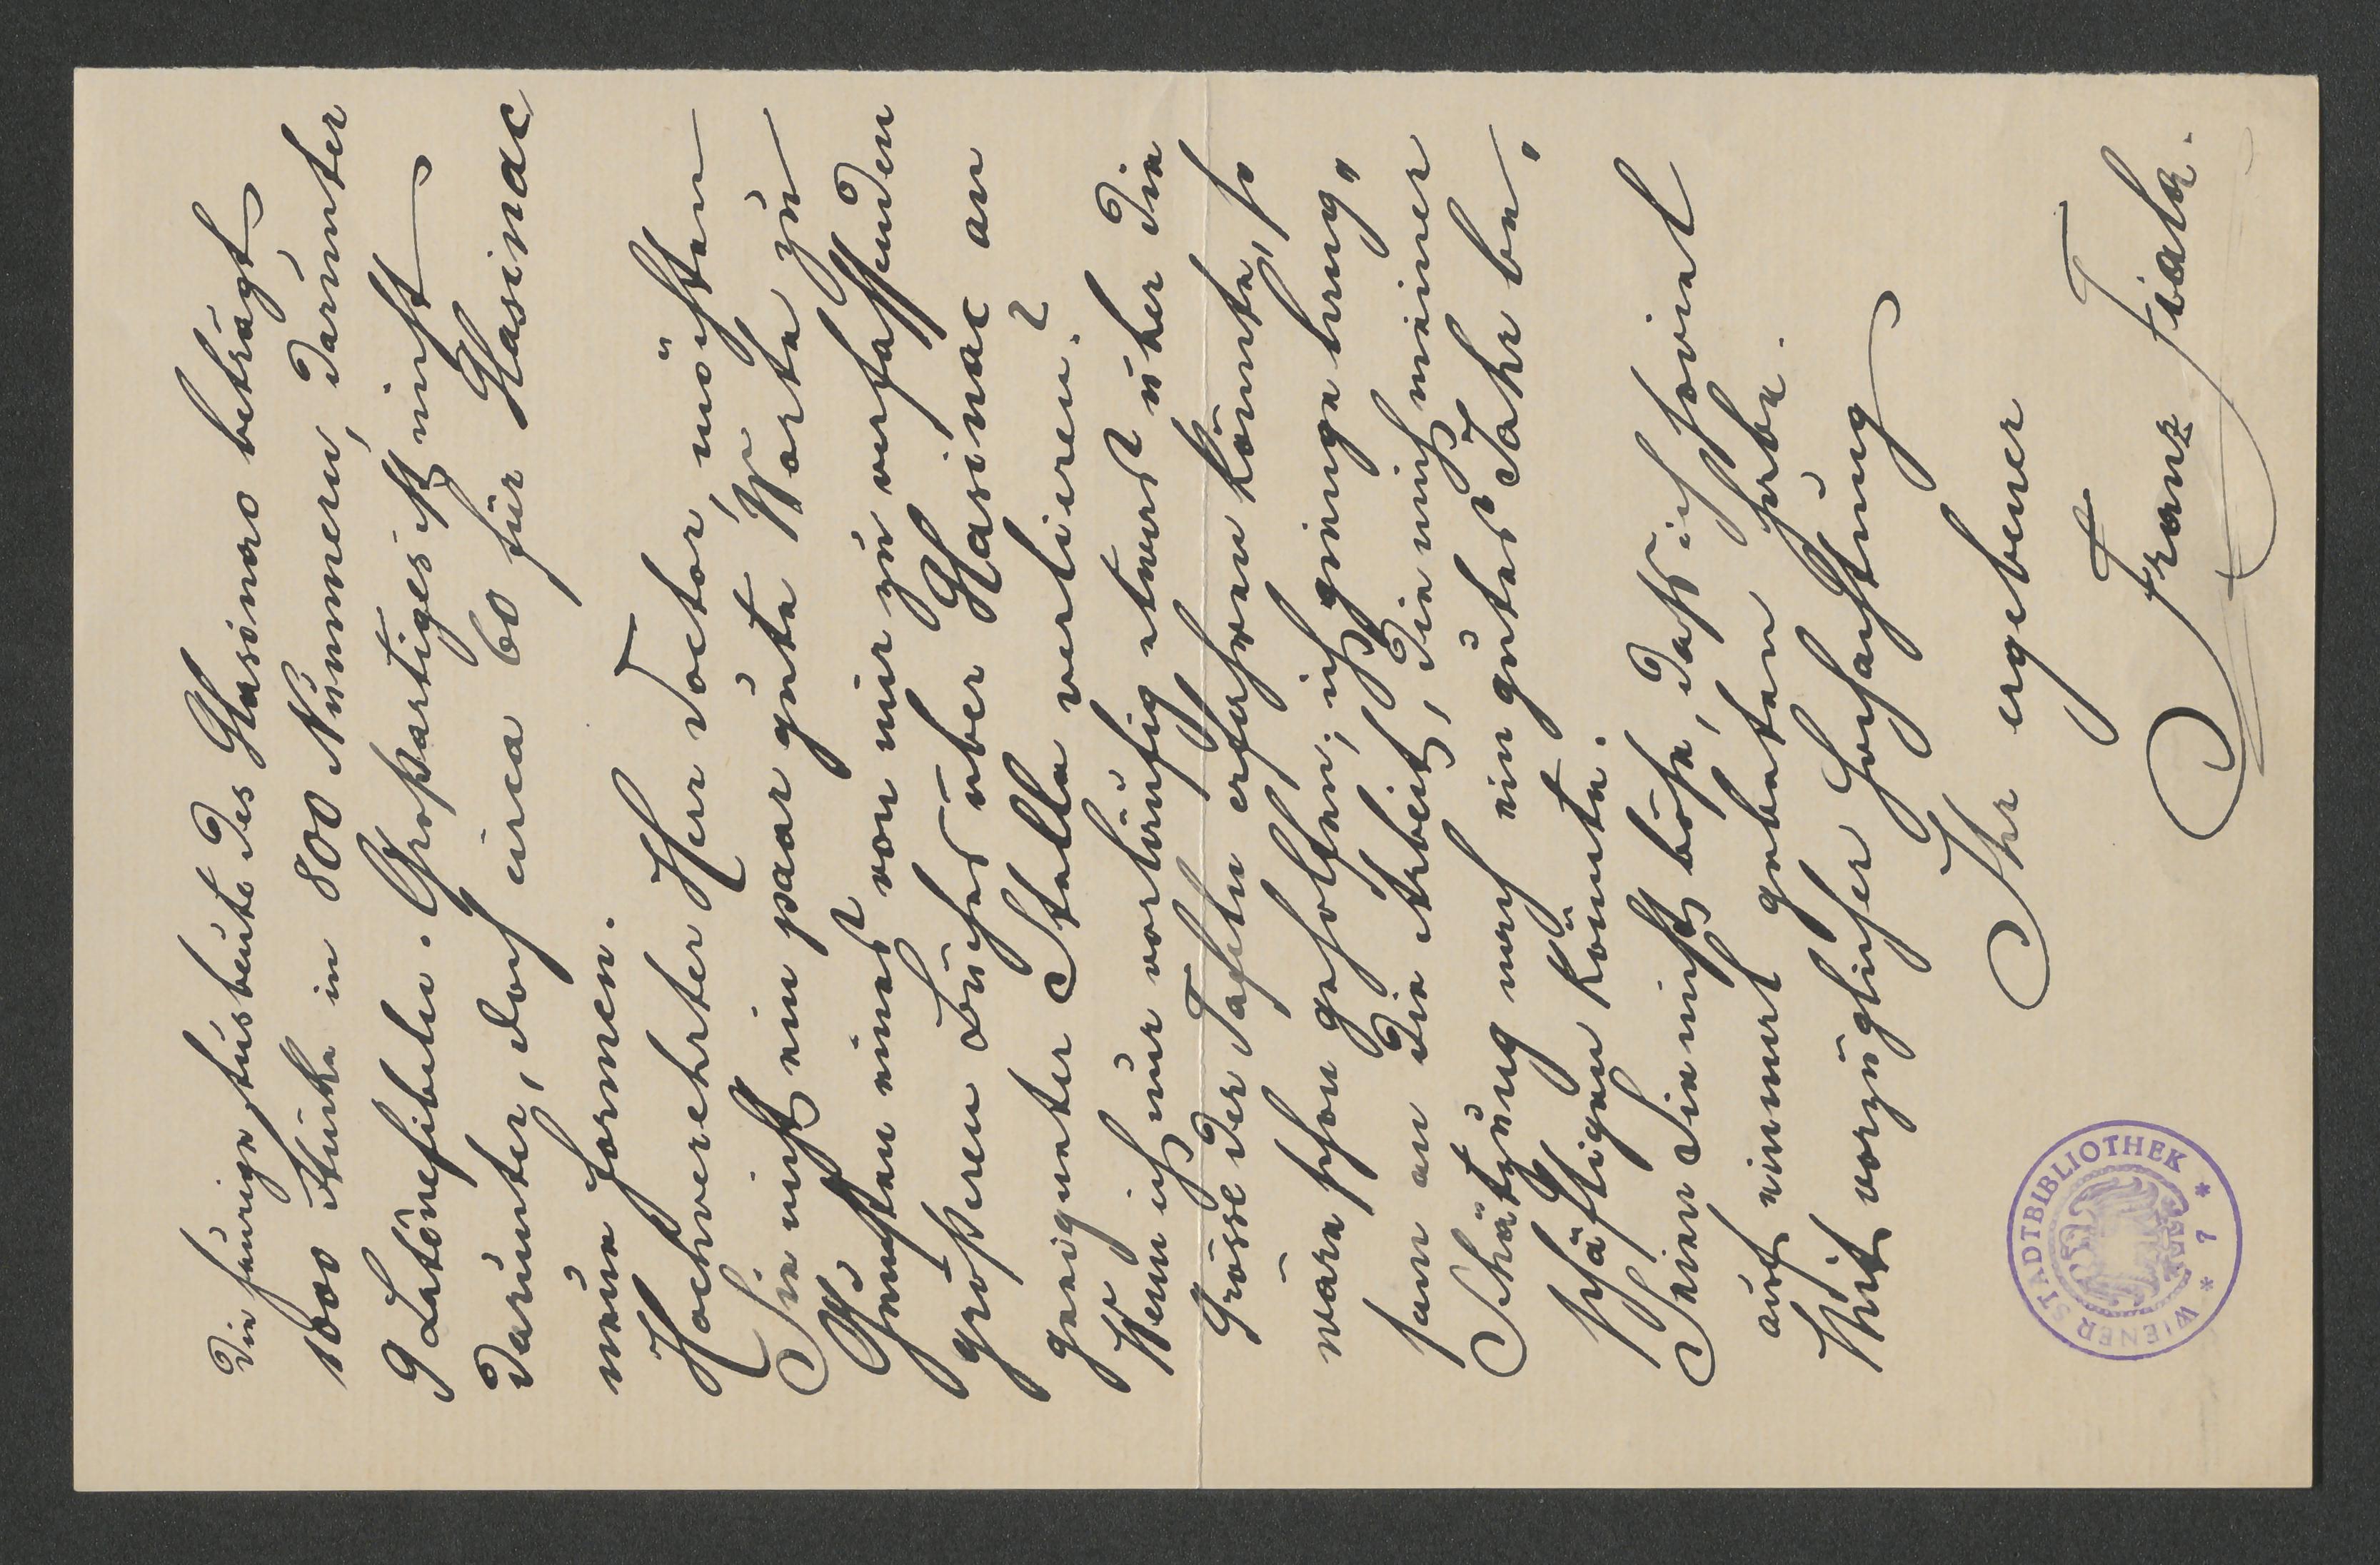 Die heurige Ausbeute des Glasinac beträgt
1000 Stücke in 800 Nummern, darunter
9 Latènefibeln. Großartiges ist nicht
darunter, doch circa 60 für Glasinac
neue Formen.
Hochverehrter Herr Doctor, möchten
Sie nicht ein paar gute Worte zu
Gunsten eines von mir zu verfassenden
größeren Buches über Glasinac an
geeigneter Stelle verlieren?
Wenn ich nur vorläufig etwas über die
Grösse der Tafeln erfahren könnte, so
wäre schon geholfen; ich ginge lang„
sam an die Arbeit, die mich meiner
Schätzung nach ein gutes Jahr be„
schäftigen könnte.
Seien Sie nicht böse, daß ich soviel
auf einmal gebeten habe.
Mit vorzüglicher Hochachtung
Ihr ergebener
Franz Fiala.
WIENER STADTBIBLIOTHEK * 7 *